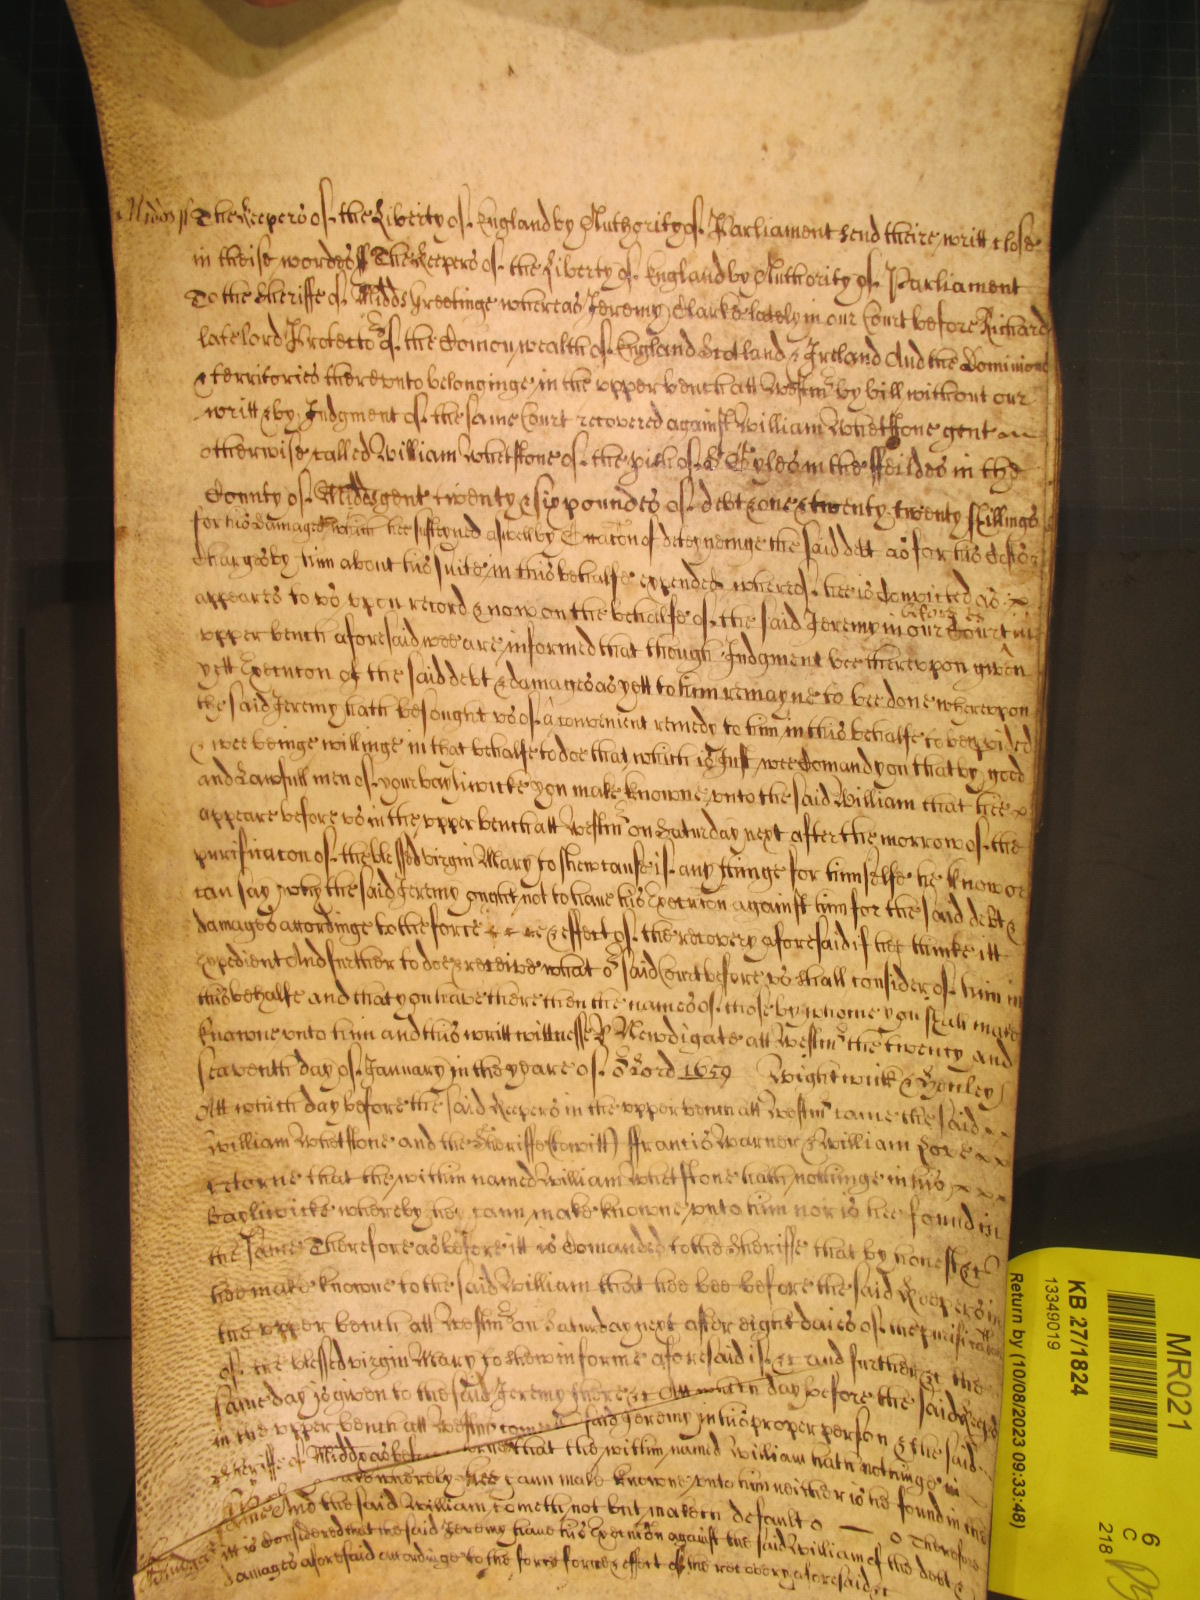 Midds ss The Keepers of the Liberty of England by Authority of Parliament send theire writt close
in theise wordes ss The Keepers of the Liberty of England by Authority of Parliament
To the Sheriffe of Midds Greetinge whereas Jeremy Clarke lately in our Court before Richard
late lord Protector of the Comonwealth of England Scotland & Ireland And the Dominions
& territories thereunto belonginge in the upper bench att Westmr by bill without our
writt & by Judgment of the same Court recovered against William Whetstone gent
otherwise called William Whetstone of the pish of St Gyles in the ffeildes in the
County of Midds gent twenty & six poundes of debt & one & twenty shillings
for his damages which hee susteyned aswell by occacon of deteyneinge the said debt as for his costes
charges by him about his suite in this behalfe expended whereof hee is convicted as
appeares to us upon record & now on the behalfe of the said Jeremy in our Court before us in
upper bench aforesaid wee are informed that though Judgment bee thereupon given
yett Execucon of the said debt & damages as yett to him remayne to bee done whereupon
the said Jeremy hath besought us of a convenient remedy to him in this behalfe to be pvided
& wee beinge willinge in that behalfe to doe that which is Just wee Comand you that by good
and Lawfull men of your bayliwicke you make knowne unto the said William that hee
appeare before us in the upper bench att Westmr on Saturday next after the morrow of the
purificacon of the blessed virgin Mary to shew cause if any thinge for himselfe he know or
can say why the said Jeremy ought not to have his Execucon against him for the said debt &
damages accordinge to the force & effect of the recovery aforesaid if hee thinke itt
Expedient And further to doe & receive what or said Court before us shall consider of him in
this behalfe and that you have there then the names of those by whome you shall make
knowne unto him and this writt wittnesse R Newdigate att Westmr the twenty and
seaventh day of January in the yeare of or Lord 1659 Wightwick & Henley
Att which day before the said Keepers in the upper bench att Westmr came the said
William Whetstone and the Sheriffe (to witt) ffrancis Warner & William Love
retorne that the within named William Whetstone hath nothinge in his
Bayliwicke whereby they cann make knowne unto him nor is hee found in
the same Therefore as before itt is Comanded to the Sheriffe that by honest &c
hee make knowne to the said William that hee bee before the said Keepers in
the upper bench att Westmr on Saturday next after eight daies of the purificacon
of the blessed virgin Mary to shew in forme aforesaid if &c and further &c the
same day is given to the said Jeremy there &c Att which day before the said Keepers
in the upper bench att Westmr came said Jeremy in his proper person & the said
Sheriffe of Midds as that the within named William hath nothinge in
whereby hee cann make knowne unto him neither is he found in the
same And the said William cometh not but maketh default Therefore
itt is Considered that the said Jeremy have his Execucon against the said William of the debt &
damages aforesaid accordinge to the force forme & effect of the recovery aforesaid &c
MR021
KB 27/1824
13349019
Return by (10/08/2023 09:33:48)
6
C
218